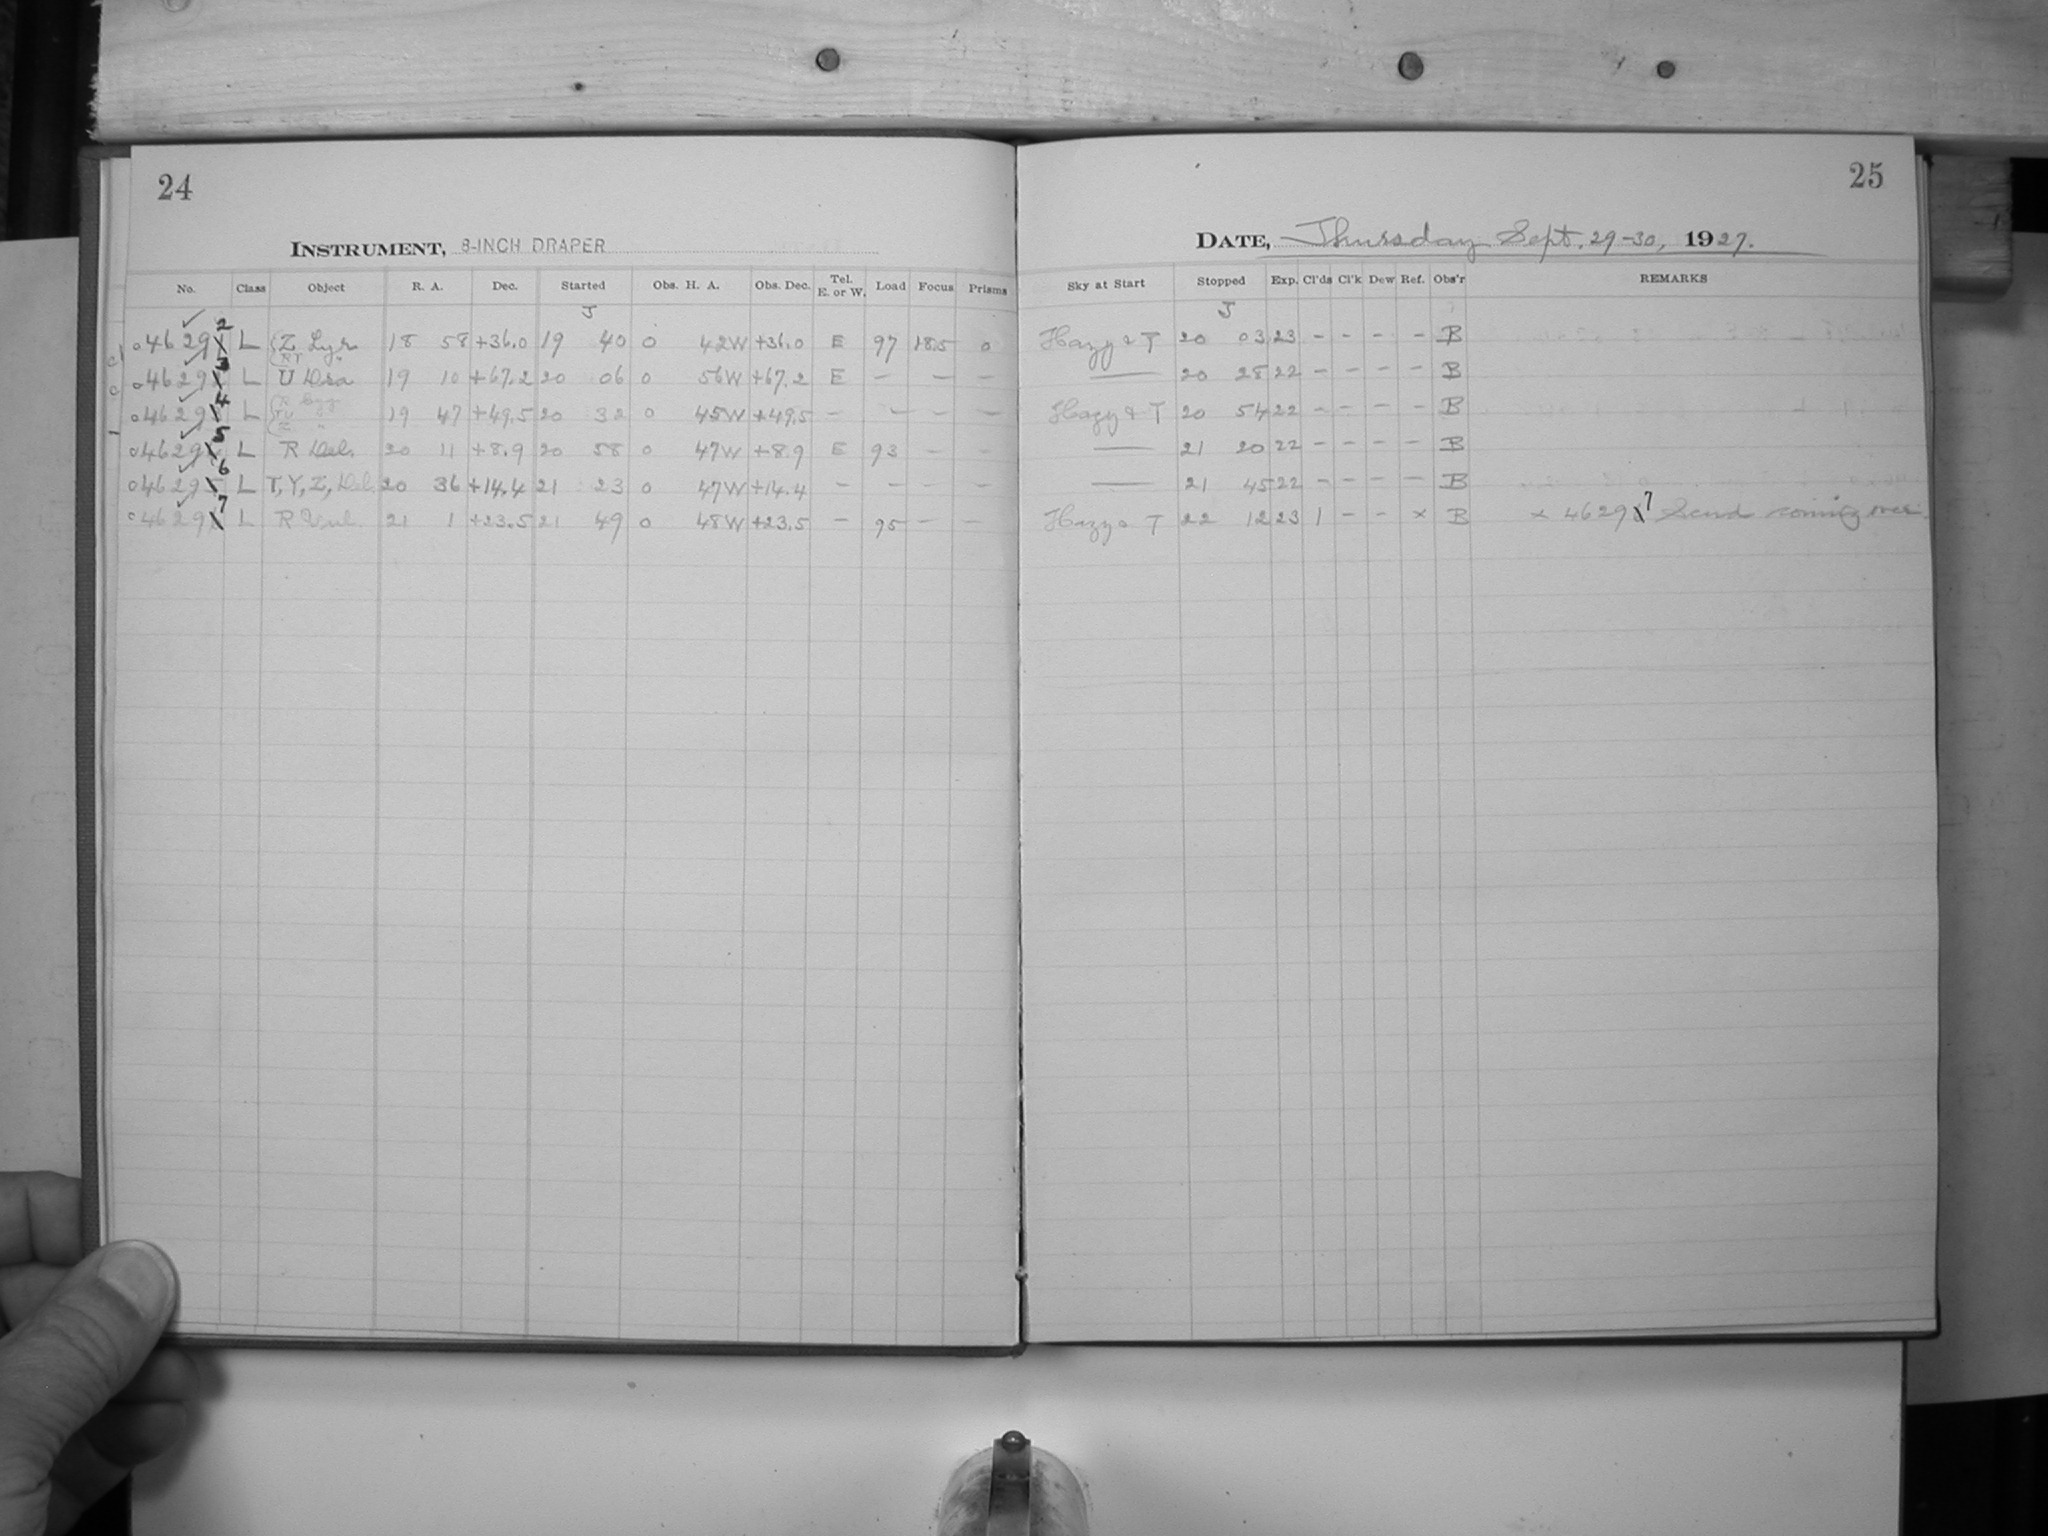 24
INSTRUMENT, 8-INCH DRAPER
No. Class Object R. A. Dec. Started Obs. H. A. Obs. Dec. Tel. E. or W. Load Focus Prisms
J
46292 L Z Lyr 18 58 +36.0 19 40 0 42W +36.0 E 97 18.5 0
RT "
46293 L U Dra 19 10 +67.2 20 06 0 56W +67.2 E — — —
46294 L R Cyg 19 47 +49.5 20 32 0 45W +49.5 — — — —
TU "
Z "
46295 L R Del. 20 11 +8.9 20 58 0 47W +8.9 E 93 — —
46296 L T, Y, Z, Del. 20 36 +14.4 21 23 0 47W +14.4 — — — —
46297 L R Vul. 21 1 +23.5 21 49 0 48W +23.5 — 95 — —
25
DATE, Thursday Sept. 29-30, 1927.
Sky at Start Stopped Exp. Cl'ds Cl'k Dew Ref. Obs'r REMARKS
J
Hazy & T 20 03 23 – – – – B
—— 20 28 22 – – – – B
Hazy & T 20 54 22 – – – – B
—— 21 20 22 – – – – B
—— 21 45 22 – – – – B
Hazy & T 22 12 23 1 – – x B x 46297 Scud coming over.